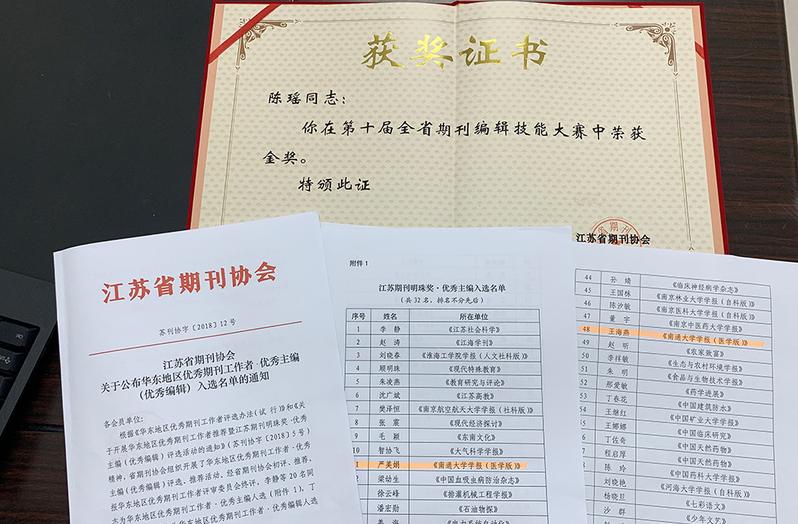 获奖证书
陈瑶同志：
你在第十届全省期刊编辑技能大赛中荣获
金奖。
特颁此证
江苏省期刊协会
江苏省期刊协会
苏刊协字〔2018〕12号
江苏省期刊协会
关于公布华东地区优秀期刊工作者·优秀主编
（优秀编辑）入选名单的通知
各会员单位：
根据《华东地区优秀期刊工作者评选办法（试行）》和《关
于开展华东地区优秀期刊工作者推荐暨江苏期刊明珠奖·优秀
主编（优秀编辑）评选活动的通知》（苏刊协字〔2018〕5号）
精神，省期刊协会组织开展了华东地区优秀期刊工作者·优秀
主编（优秀编辑）评选、推荐活动。经省期刊协会初评、推荐，
报华东地区优秀期刊工作者评审委员会终评，李静等20名同
志为华东地区优秀期刊工作者·优秀主编人选（附件1），丁
附件1
江苏期刊明珠奖·优秀主编入选名单
（共32名，排名不分先后）
序号 姓名 所在单位
1 李静 《江苏社会科学》
2 赵涛 《江海学刊》
3 刘晓春 《淮海工学院学报（人文社科版）》
4 顾明珠 《现代特殊教育》
5 朱凌燕 《教育研究与评论》
6 沈广斌 《江苏高教》
7 樊泽恒 《南京航空航天大学学报（社科版）》
8 张震 《现代经济探讨》
9 毛颖 《东南文化》
10 智协飞 《大气科学学报》
1 严美娟 《南通大学学报（医学版）》
2 梁幼生 《中国血吸虫病防治杂志》
3 徐云峰 《排灌机械工程学报》
4 潘宏勋 《石油物探》
44 孙婧 《临床神经病学杂志》
45 王国栋 《南京林业大学学报（自科版）》
46 陈汐敏 《南京医科大学学报（自科版）》
47 董宇 《南京中医药大学学报》
48 王海燕 《南通大学学报（医学版）》
49 赵昕 《农家致富》
50 李祥敏 《生态与农村环境学报》
51 朱明 《食品与生物技术学报》
52 那爱敏 《药学进展》
53 丁春花 《中国建筑防水》
54 王继红 《中国矿业大学学报》
55 王娜娜 《中国临床研究》
56 丁佐奇 《中国天然药物》
57 程启厚 《中国天然药物》
58 陈玲 《中国药科大学学报》
59 刘晓艳 《河海大学学报（自科版）》
60 杨晓旦 《七彩语文》
61 沙群 《少年文艺》